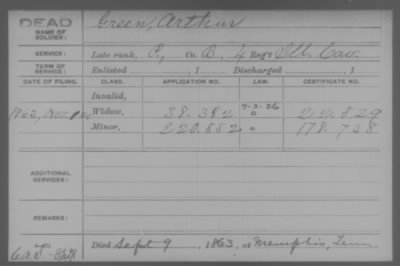 DEAD
NAME OF SOLDIER: Green, Arthur
SERVICE: Late rank, P, Co. B, 4 Reg't Ill. Cav.
TERM OF SERVICE: Enlisted , 1 Discharged , 1
DATE OF FILING. CLASS. APPLICATION NO. LAW. CERTIFICATE NO.
Invalid,
1863, Nov. Widow, 38.382 "
Minor, 220.552 " 178.738
ADDITIONAL SERVICES:
REMARKS:
Died Sept 9, 1863, at Memphis, Tenn